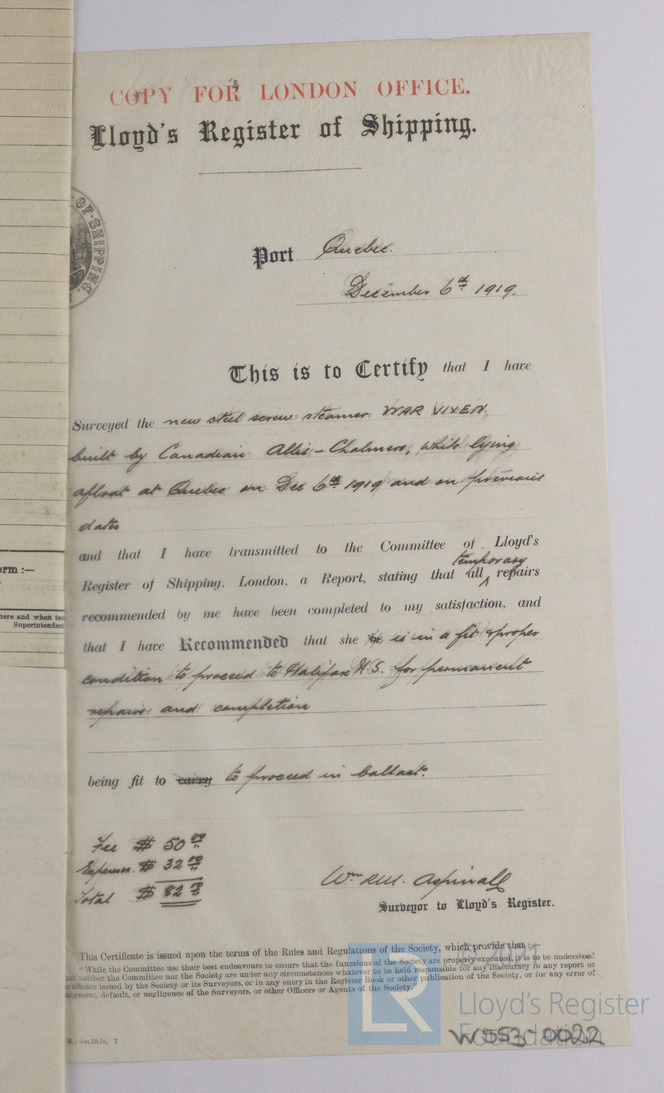 COPY FOR LONDON OFFICE.
Lloyd's Register of Shipping.
OF SHIPPING
Port Quebec.
December 6th 1919.
This is to Certify that I have
Surveyed the new steel screw steamer WAR VIXEN,
built by Canadian Allis-Chalmers, while lying
afloat at Quebec on Dec 6th 1919 and on previous
dates
and that I have transmitted to the Committee of Lloyd's
temporary
Register of Shipping, London, a Report, stating that all repairs
recommended by me have been completed to my satisfaction, and
that I have Recommended that she is in a fit & proper
condition to proceed to Halifax N.S. for permanent
repairs and completion
being fit to carry to proceed in ballast.
Fee $ 50.00
Expenses $ 32.00
Total $ 82.00
Wm R.M. Aspinall
Surveyor to Lloyd's Register.
This Certificate is issued upon the terms of the Rules and Regulations of the Society, which provide that :—
"While the Committee use their best endeavours to ensure that the functions of the Society are properly executed, it is to be understood
that neither the Committee nor the Society are under any circumstances whatever to be held responsible for any inaccuracy in any report or
certificate issued by the Society or its Surveyors, or in any entry in the Register Book or other publication of the Society, or for any error of
judgment, default, or negligence of the Surveyors, or other Officers or Agents of the Society."
LR
Lloyd's Register
Foundation
W553-0022
T
orm :—
here and when
Superintenden